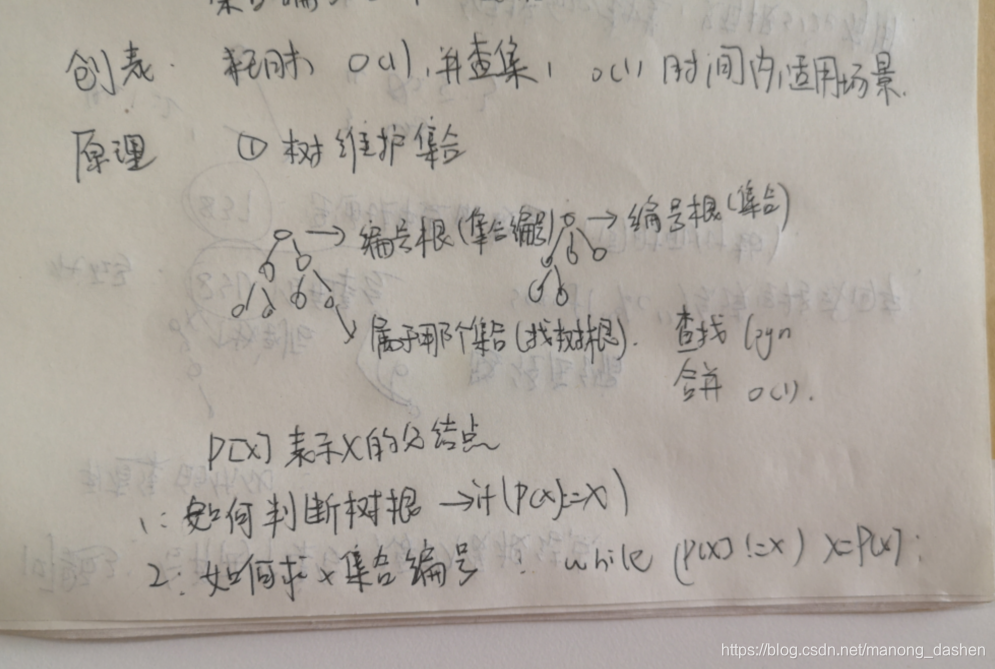 创表. 耗时 O(1), 并查集, O(1) 时间内, 适用场景.
原理 ① 树维护集合
→ 编号根(集合编号) → 编号根(集合)
属于那个集合(找树根). 查找 logn
合并 O(1).
P[X] 表示X的父结点
1: 如何判断树根 → if(P(X)!=X)
2: 如何求x集合编号: while (P[X]!=x) X=P[X];
https://blog.csdn.net/manong_dashen